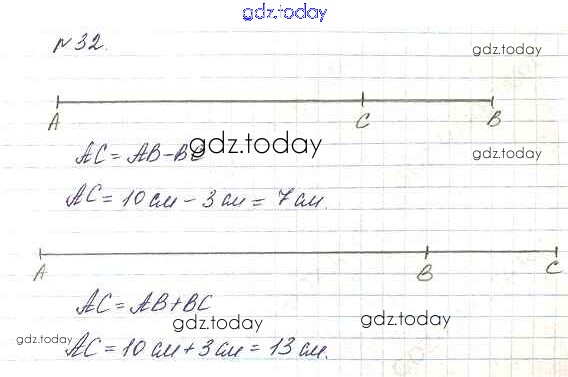 gdz.today
№32.
gdz.today
A C B
AC = AB - BC
gdz.today
gdz.today
AC = 10 см - 3 см = 7 см.
A B C
AC = AB + BC
gdz.today
gdz.today
gdz.today
AC = 10 см + 3 см = 13 см.